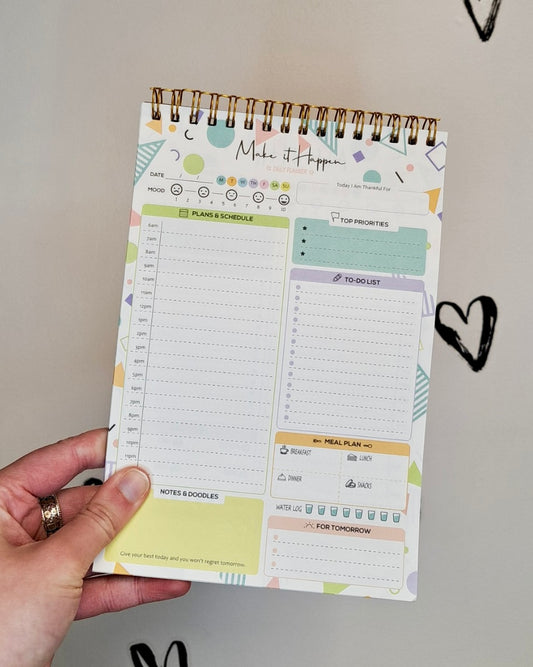 Make it Happen
DAILY PLANNER
DATE / / M T W T F SA SU
MOOD
1 2 3 4 5 6 7 8 9 10
Today I Am Thankful For
PLANS & SCHEDULE
6am
7am
8am
9am
10am
11am
12pm
1pm
2pm
3pm
4pm
5pm
6pm
7pm
8pm
9pm
10pm
11pm
TOP PRIORITIES
TO-DO LIST
MEAL PLAN
BREAKFAST
LUNCH
DINNER
SNACKS
WATER LOG
NOTES & DOODLES
Give your best today and you won't regret tomorrow.
FOR TOMORROW